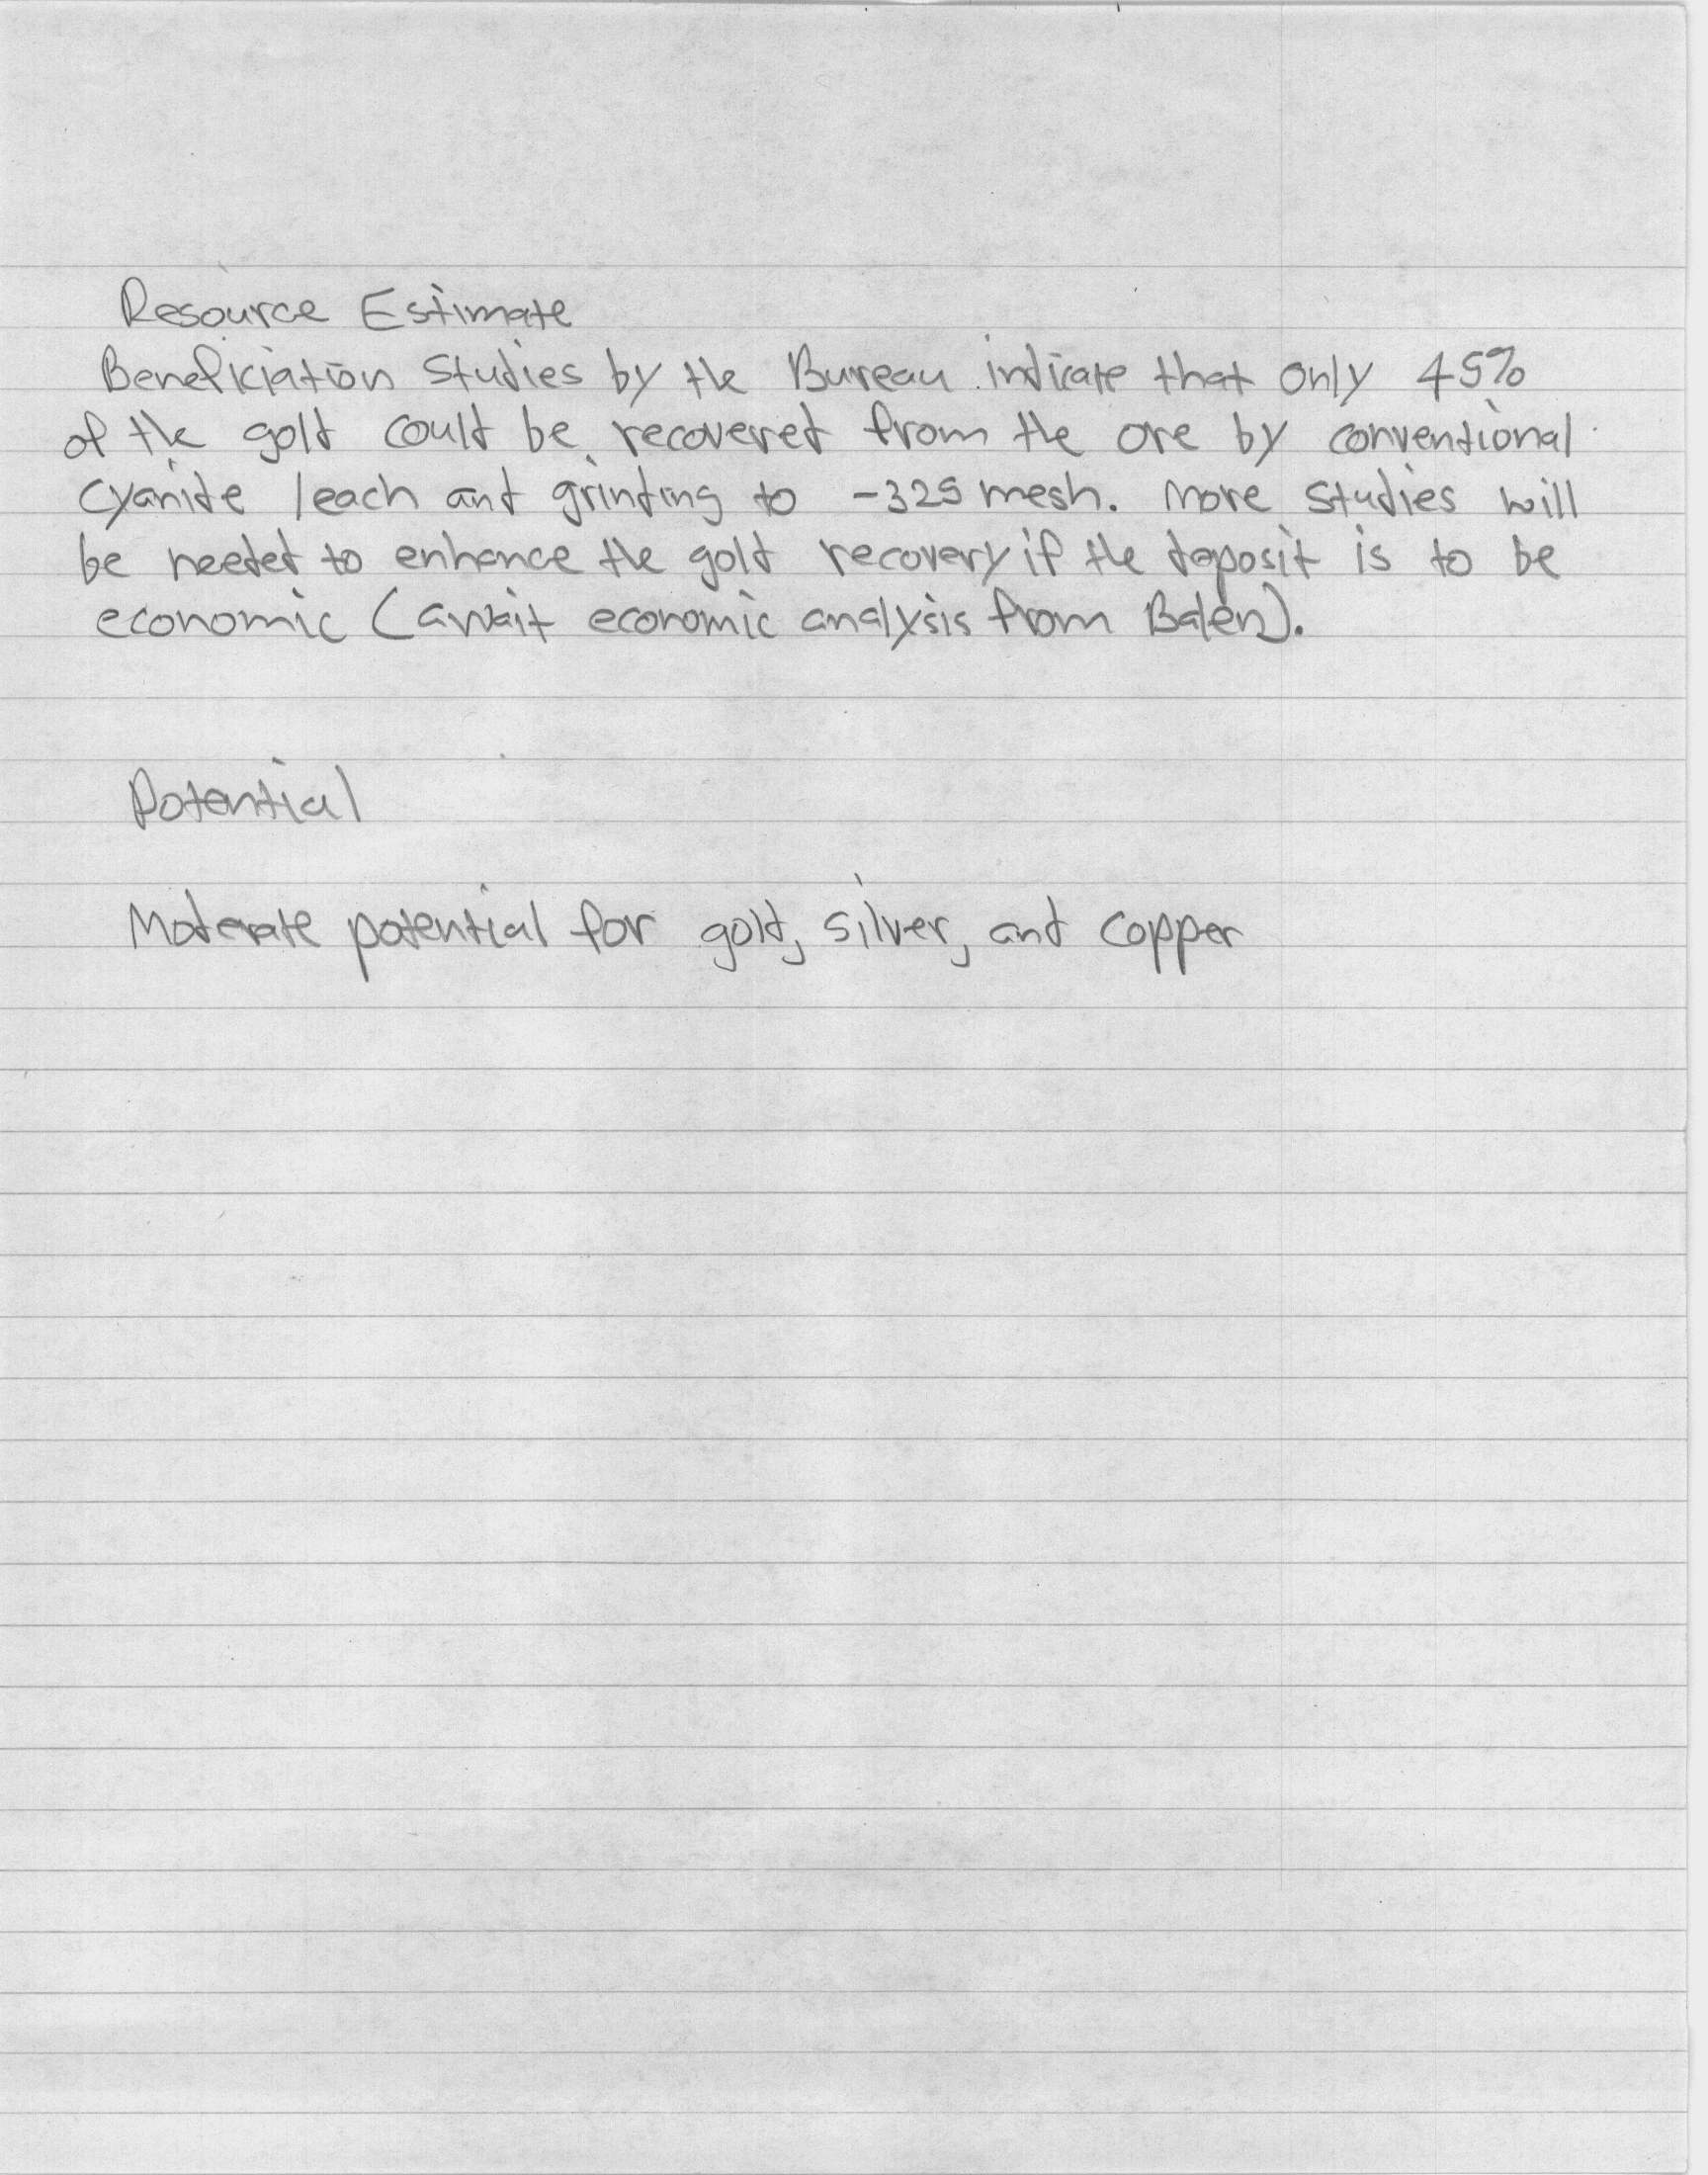 Resource Estimate
Beneficiation studies by the Bureau indicate that only 45%
of the gold could be recovered from the ore by conventional
cyanide leach and grinding to -325 mesh. More studies will
be needed to enhance the gold recovery if the deposit is to be
economic (await economic analysis from Balen).
Potential
Moderate potential for gold, silver, and copper